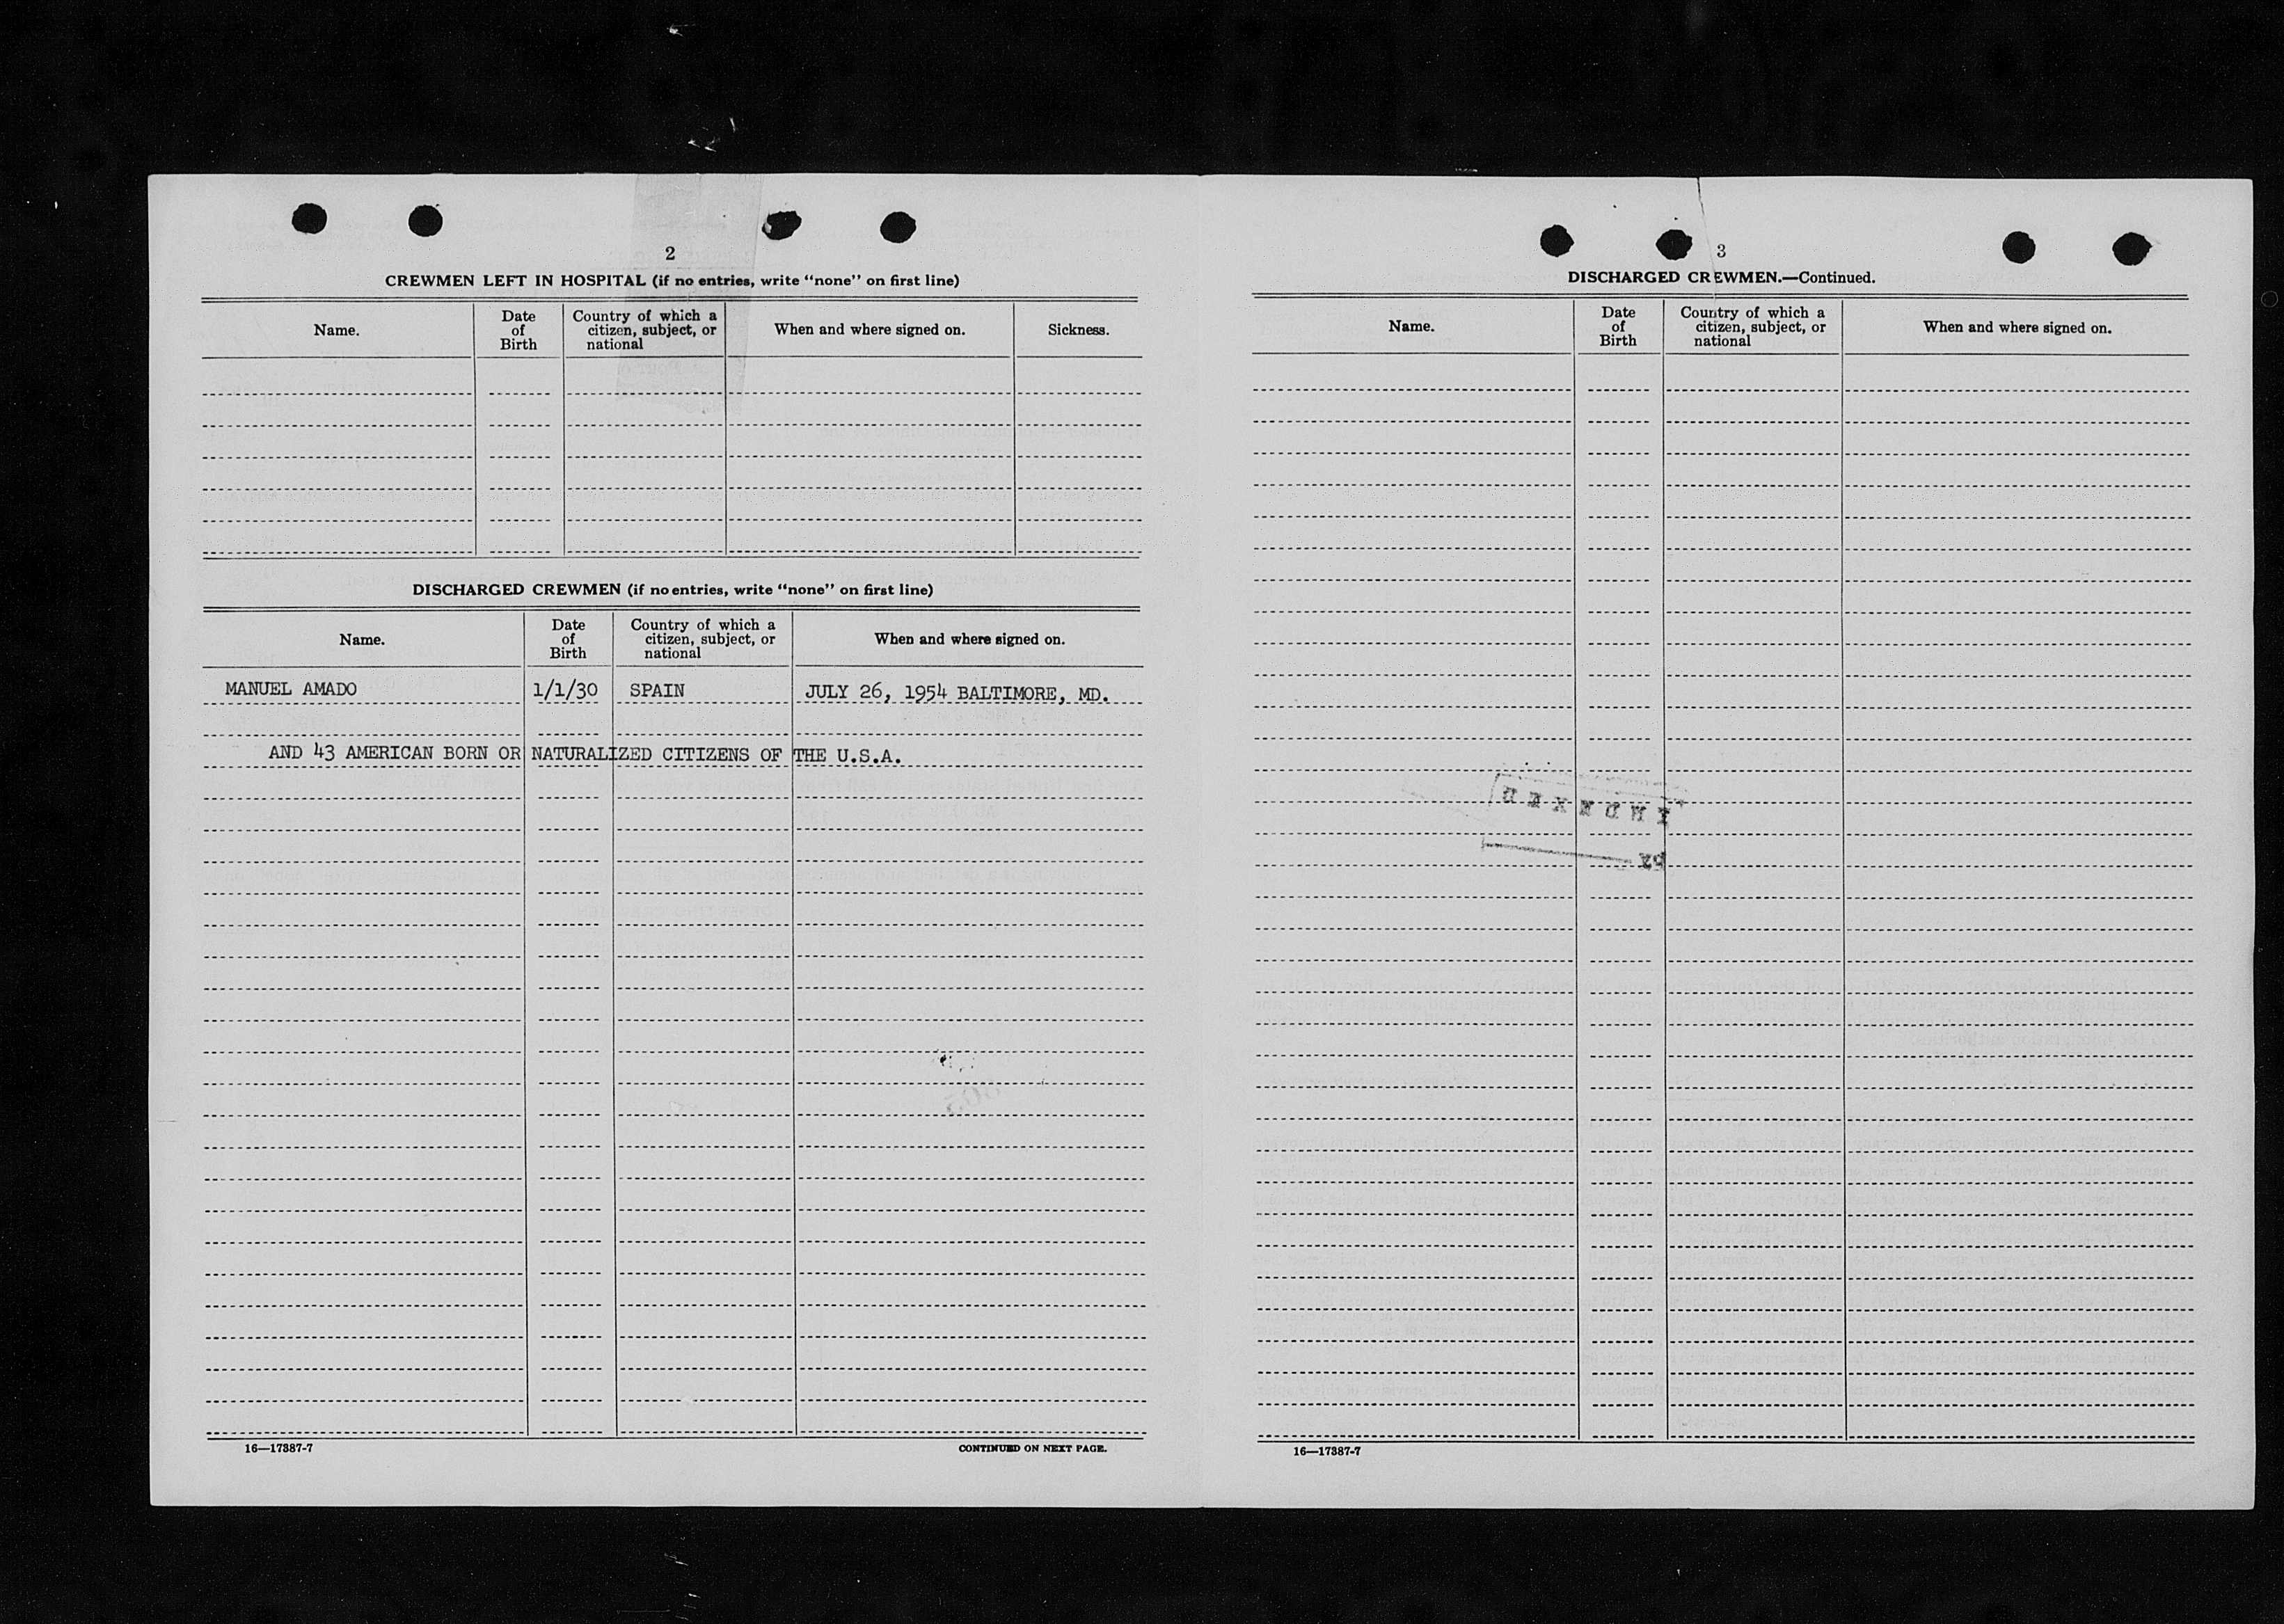 2
CREWMEN LEFT IN HOSPITAL (if no entries, write “none” on first line)
Name.
Date of Birth
Country of which a citizen, subject, or national
When and where signed on.
Sickness.
DISCHARGED CREWMEN (if no entries, write “none” on first line)
Name.
Date of Birth
Country of which a citizen, subject, or national
When and where signed on.
MANUEL AMADO 1/1/30 SPAIN JULY 26, 1954 BALTIMORE, MD.
AND 43 AMERICAN BORN OR NATURALIZED CITIZENS OF THE U.S.A.
16—17387-7
CONTINUED ON NEXT PAGE.
3
DISCHARGED CREWMEN.—Continued.
Name.
Date of Birth
Country of which a citizen, subject, or national
When and where signed on.
INDEXED
16—17387-7